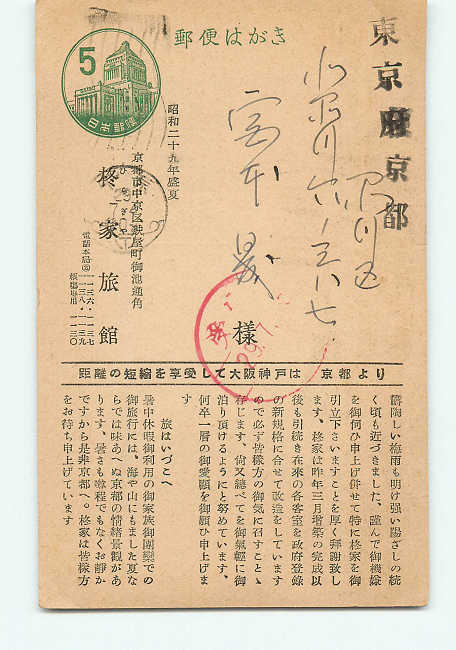 郵便はがき
5
日本郵便
東京
京都
様
昭和二十九年盛夏
京都市中京区麸屋町御池通角
柊家旅館
電話本局②
一一三六・一一三七
一一三八・一一三九
板場専用 一一三〇
距離の短縮を享受して大阪神戸は 京都より
鬱陶しい梅雨も明け强い陽ざしの続
く頃も近づきました、謹んで御機嫌
を御伺ひ申上げ併せて特に柊家を御
引立下さいますことを厚く拝謝致し
ます、柊家は昨年三月増築の完成以
後も引続き在来の各客室を政府登録
の新規格に合せて改造をしています
ので必ず皆様方の御気に召すことゝ
存じます、尚又総べてを御気軽に御
泊り頂けるようにと努めています、
何卒一層の御愛顧を御願ひ申上げま
す
旅はいづこへ
暑中休暇御利用の御家族御團欒での
御旅行には、海や山にもました夏な
らでは味あへぬ京都の情緒景観があ
ります、暑さも激程でもなくお静か
ですから是非京都へ。柊家は皆様方
をお待ち申上げています